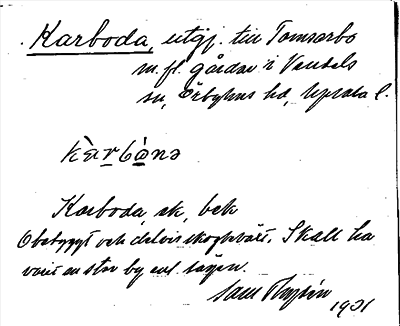 Karboda, utgj. till Tomsarbo
m. fl. gårdar i Vendels
sn, Örbyhus hd, Upsala l.
Karboda, åk, bek
Obebyggt och delvis skogbeväxt. Skall ha
varit en stor by enl. sägen.
1931